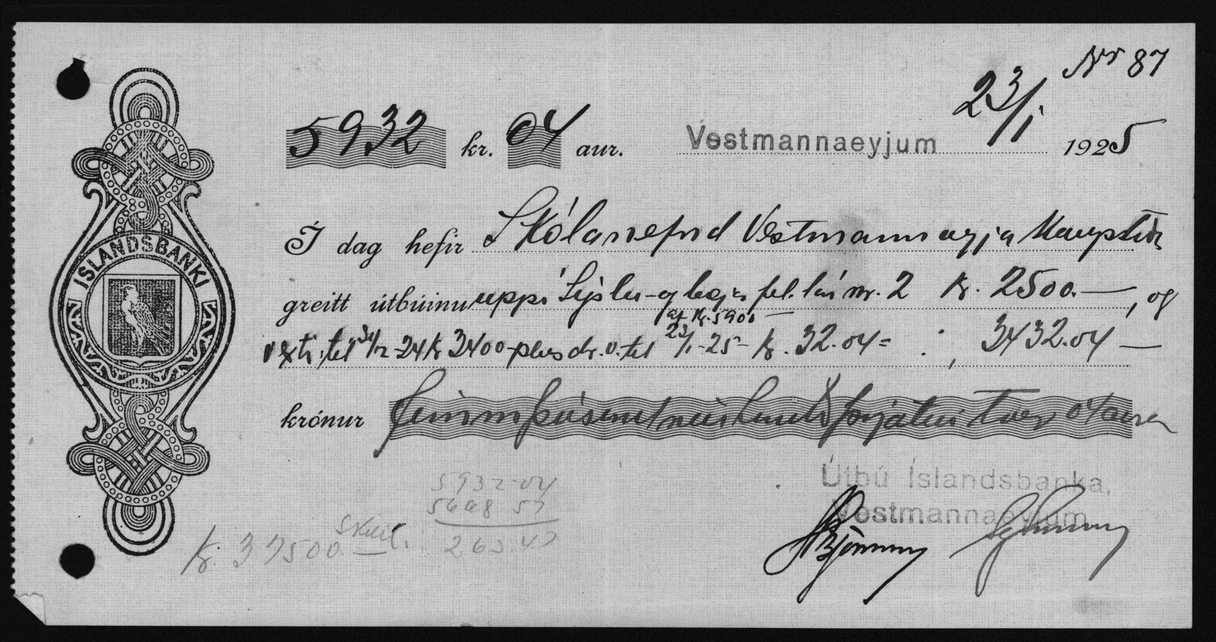 Nr 87
5932 kr. 04 aur. Vestmannaeyjum 23/1 1925
ÍSLANDSBANKI
Í dag hefir Skólanefnd Vestmannaeyja Kaupstaðar
greitt útbúinu uppí Sýslu- og bæjarfél. lán nr. 2 kr. 2500.—, og
af kr. 5900—
vexti til 31/12 24 kr 3400- plus dr.v. til 23/1-25- kr. 32.04 = : , 3432.04 —
krónur fimmþúsundníuhundruðþrjátíu tvær 04 aura
5932-04
5668 57
263.47
kr. 37500.— Skuld.
Útbú Íslandsbanka,
Vestmannaeyjum